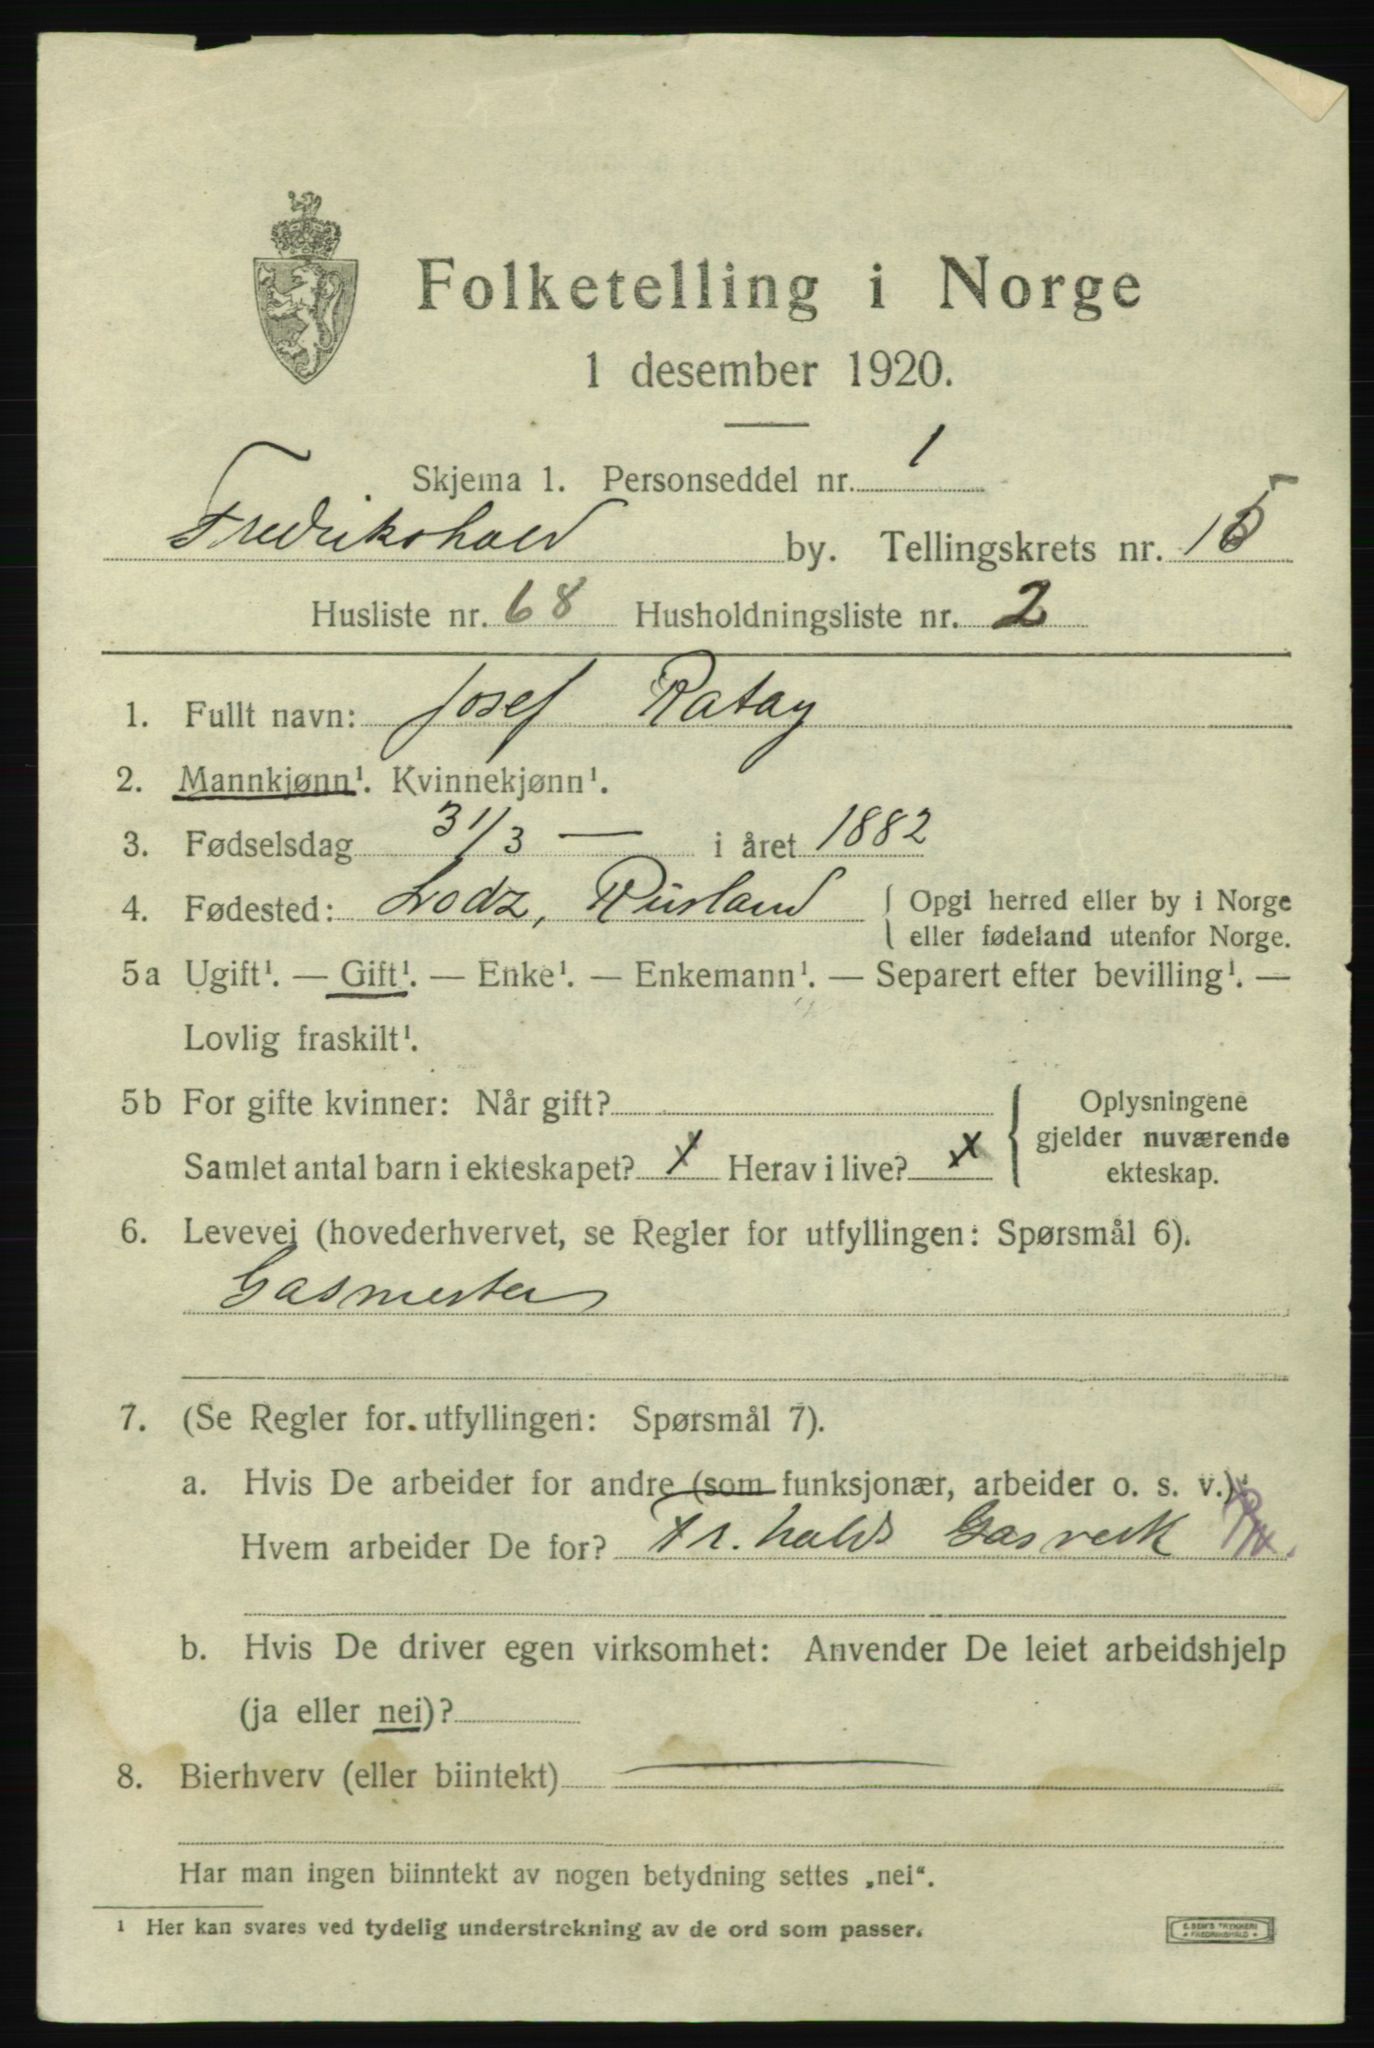 Folketelling i Norge
1 desember 1920.
Skjema 1. Personseddel nr. 1
Fredrikshald by. Tellingskrets nr. 15
Husliste nr. 68 Husholdningsliste nr. 2
1. Fullt navn: Josef Ratay
2. Mannkjønn¹. Kvinnekjønn¹.
3. Fødselsdag 31/3 — i året 1882
4. Fødested: Lodz, Rusland { Opgi herred eller by i Norge
eller fødeland utenfor Norge.
5a Ugift¹. — Gift¹. — Enke¹. — Enkemann¹. — Separert efter bevilling¹. —
Lovlig fraskilt¹.
5b For gifte kvinner: Når gift? { Oplysningene
gjelder nuværende
Samlet antal barn i ekteskapet? x Herav i live? x
ekteskap.
6. Levevei (hovederhvervet, se Regler for utfyllingen: Spørsmål 6).
Gasmester
7. (Se Regler for utfyllingen: Spørsmål 7).
a. Hvis De arbeider for andre (som funksjonær, arbeider o. s. v.):
Hvem arbeider De for? Fr.halds Gasverk
b. Hvis De driver egen virksomhet: Anvender De leiet arbeidshjelp
(ja eller nei)?
8. Bierhverv (eller biintekt) —
Har man ingen biinntekt av nogen betydning settes „nei“.
¹ Her kan svares ved tydelig understrekning av de ord som passer.
E. SEM'S TRYKKERI
* FREDRIKSHALD *